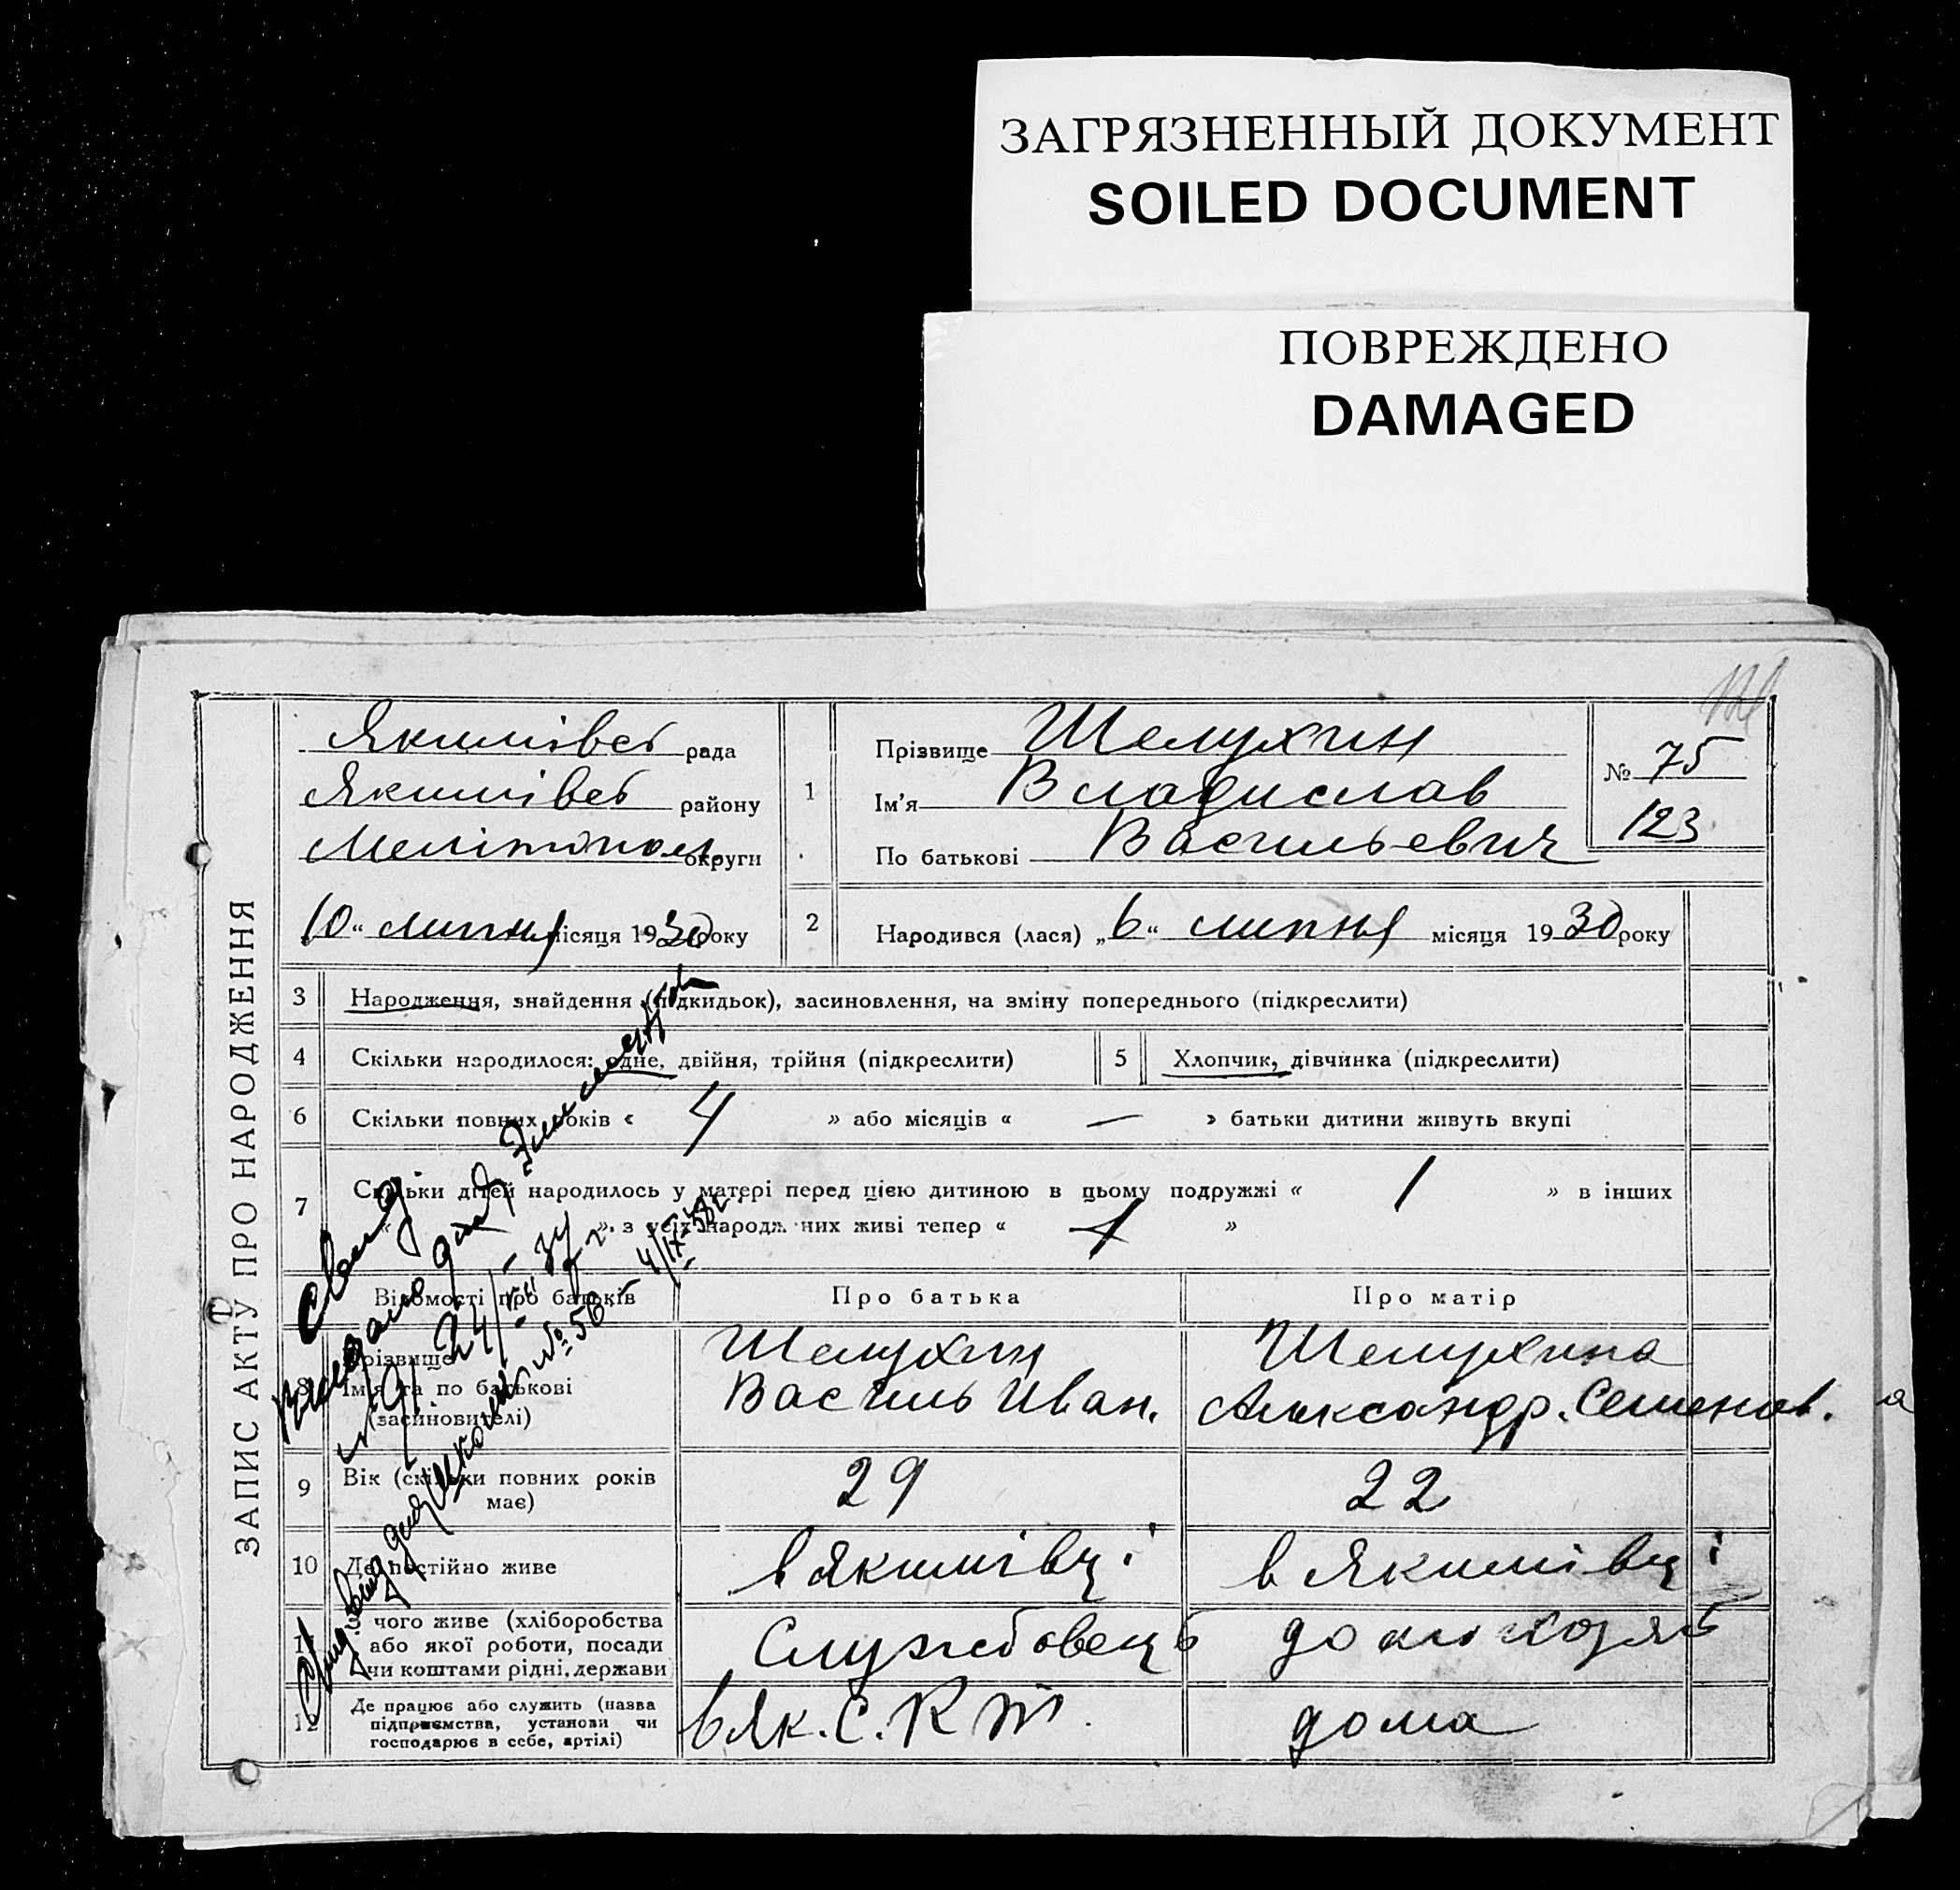 ЗАГРЯЗНЕННЫЙ ДОКУМЕНТ
SOILED DOCUMENT
ПОВРЕЖДЕНО
DAMAGED
ЗАПИС АКТУ ПРО НАРОДЖЕННЯ
Якимівсь рада
Якимівсь району
Мелітопол. округи
„10“ липня місяця 1930 року
1
Прізвище Шелухин
Ім'я Владислав
По батькові Васильевич
№ 75
123
2
Народився (лася) „6“ липня місяця 1930 року
3 Народження, знайдення (підкидьок), засиновлення, на зміну попереднього (підкреслити)
4 Скільки народилося: одне, двійня, трійня (підкреслити)
5 Хлопчик, дівчинка (підкреслити)
6 Скільки повних років « 4 » або місяців « — » батьки дитини живуть вкупі
7 Скільки дітей народилось у матері перед цією дитиною в цьому подружжі « 1 » в інших
« » з усіх народжених живі тепер « 1 »
Відомості про батьків
Про батька
Про матір
8 Прізвище
Ім'я та по батькові
(засиновителі)
Шелухин
Василь Иван.
Шелухина
Александр. Семенов.
а
9 Вік (скільки повних років
має)
29
22
10 Де постійно живе
в Якимівці
в Якимівці
11 чого живе (хліборобства
або якої роботи, посади
чи коштами рідні, держави
Службовець
домохозяй
12 Де працює або служить (назва
підприємства, установи чи
господарює в себе, артілі)
в Як. С. К. Т.
дома
№ 56 - 4/IX-38г.